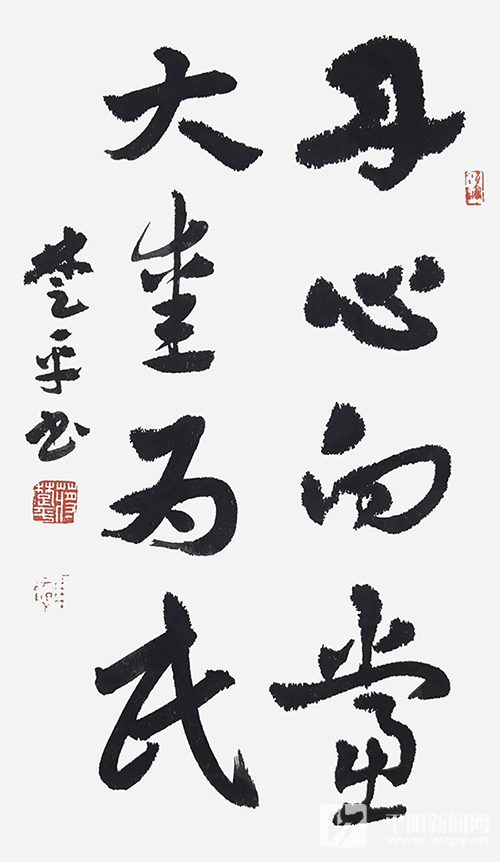 丹心向黨
大爱为民
楚平书
平阳新闻网
www.wzpy.cn